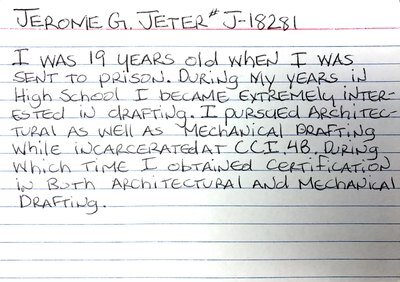 JEROME G. JETER # J-18281
I WAS 19 YEARS OLD WHEN I WAS
SENT TO PRISON. DURING MY YEARS IN
HIGH SCHOOL I BECAME EXTREMELY INTER-
ESTED IN DRAFTING. I PURSUED ARCHITEC-
TURAL AS WELL AS MECHANICAL DRAFTING
WHILE INCARCERATED AT C.C.I. 4B. DURING
WHICH TIME I OBTAINED CERTIFICATION
IN BOTH ARCHITECTURAL AND MECHANICAL
DRAFTING.